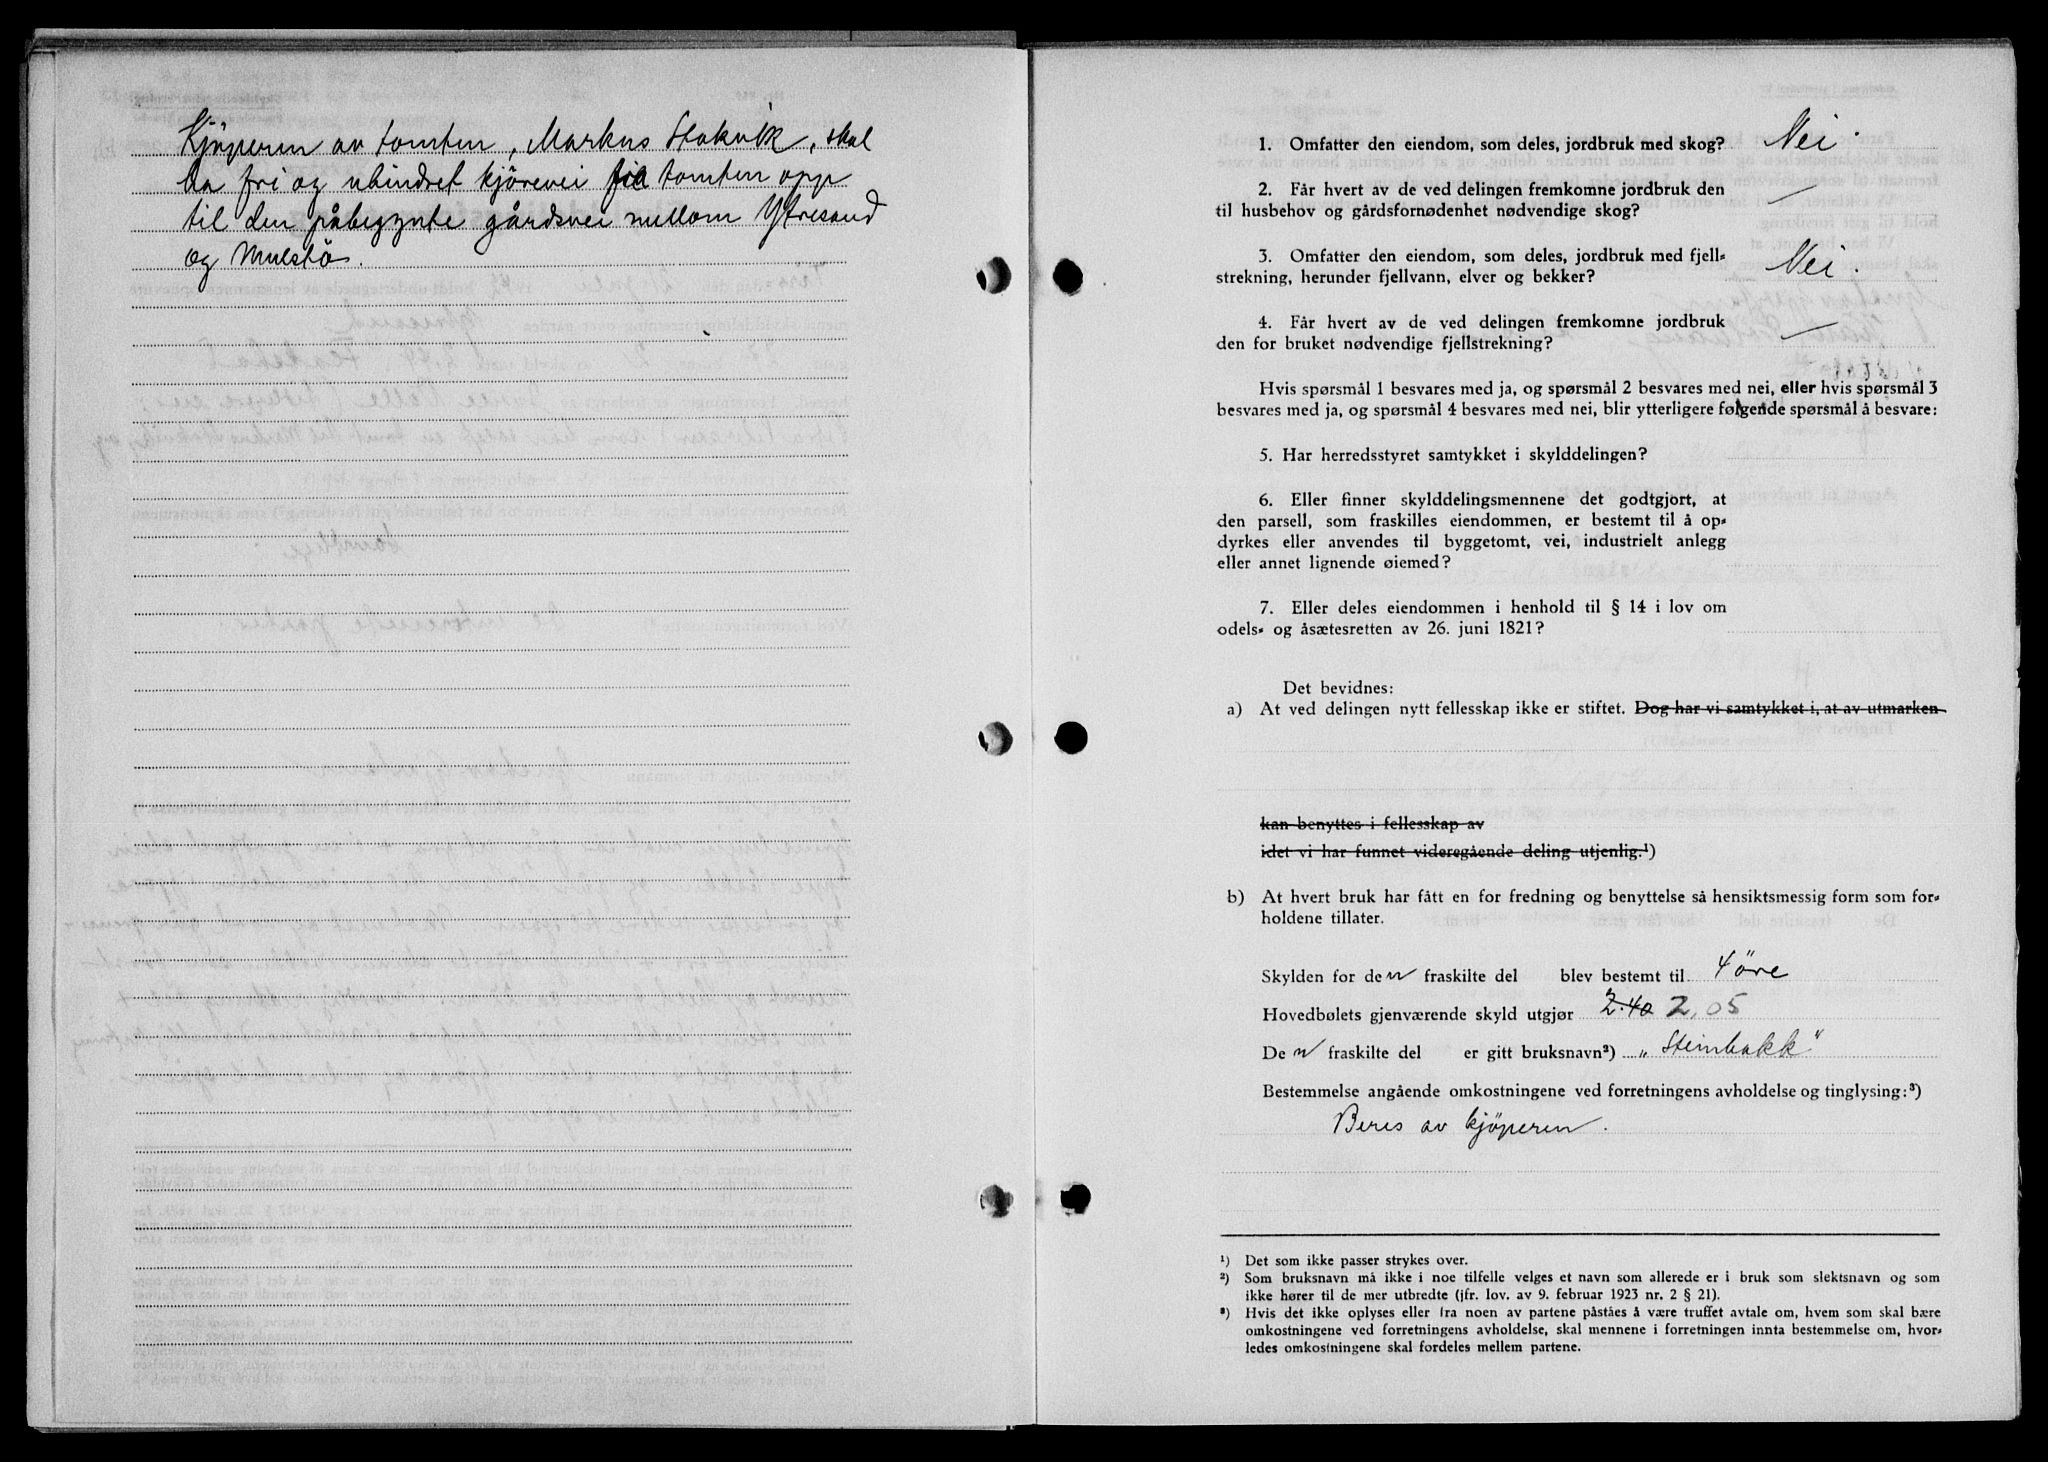 Kjöperen av tomten, Markus Stokvik, skal
ha fri og uhindret kjörevei fra tomten opp
til den påbegynte gårdsvei mellom Ytresand
og Mulstö.
1. Omfatter den eiendom, som deles, jordbruk med skog? Nei.
2. Får hvert av de ved delingen fremkomne jordbruk den
til husbehov og gårdsfornødenhet nødvendige skog? —
3. Omfatter den eiendom, som deles, jordbruk med fjell=
strekning, herunder fjellvann, elver og bekker? Nei.
4. Får hvert av de ved delingen fremkomne jordbruk
den for bruket nødvendige fjellstrekning? —
Hvis spørsmål 1 besvares med ja, og spørsmål 2 besvares med nei, eller hvis spørsmål 3
besvares med ja, og spørsmål 4 besvares med nei, blir ytterligere følgende spørsmål å besvare:
5. Har herredsstyret samtykket i skylddelingen?
6. Eller finner skylddelingsmennene det godtgjort, at
den parsell, som fraskilles eiendommen, er bestemt til å op=
dyrkes eller anvendes til byggetomt, vei, industrielt anlegg
eller annet lignende øiemed?
7. Eller deles eiendommen i henhold til § 14 i lov om
odels= og åsætesretten av 26. juni 1821?
Det bevidnes:
a) At ved delingen nytt fellesskap ikke er stiftet. Dog har vi samtykket i, at av utmarken
kan benyttes i fellesskap av
idet vi har funnet videregående deling utjenlig.¹)
b) At hvert bruk har fått en for fredning og benyttelse så hensiktsmessig form som for=
holdene tillater.
Skylden for den fraskilte del blev bestemt til 4 öre
Hovedbølets gjenværende skyld utgjør 2.40 2,05
De n fraskilte del er gitt bruksnavn²) „Steinbakk"
Bestemmelse angående omkostningene ved forretningens avholdelse og tinglysing:³)
Beres av kjöperen.
¹) Det som ikke passer strykes over.
²) Som bruksnavn må ikke i noe tilfelle velges et navn som allerede er i bruk som slektsnavn og som
ikke hører til de mer utbredte (jfr. lov. av 9. februar 1923 nr. 2 § 21).
³) Hvis det ikke oplyses eller fra noen av partene påståes å være truffet avtale om, hvem som skal bære
omkostningene ved forretningens avholdelse, skal mennene i forretningen innta bestemmelse om, hvor=
ledes omkostningene skal fordeles mellem partene.